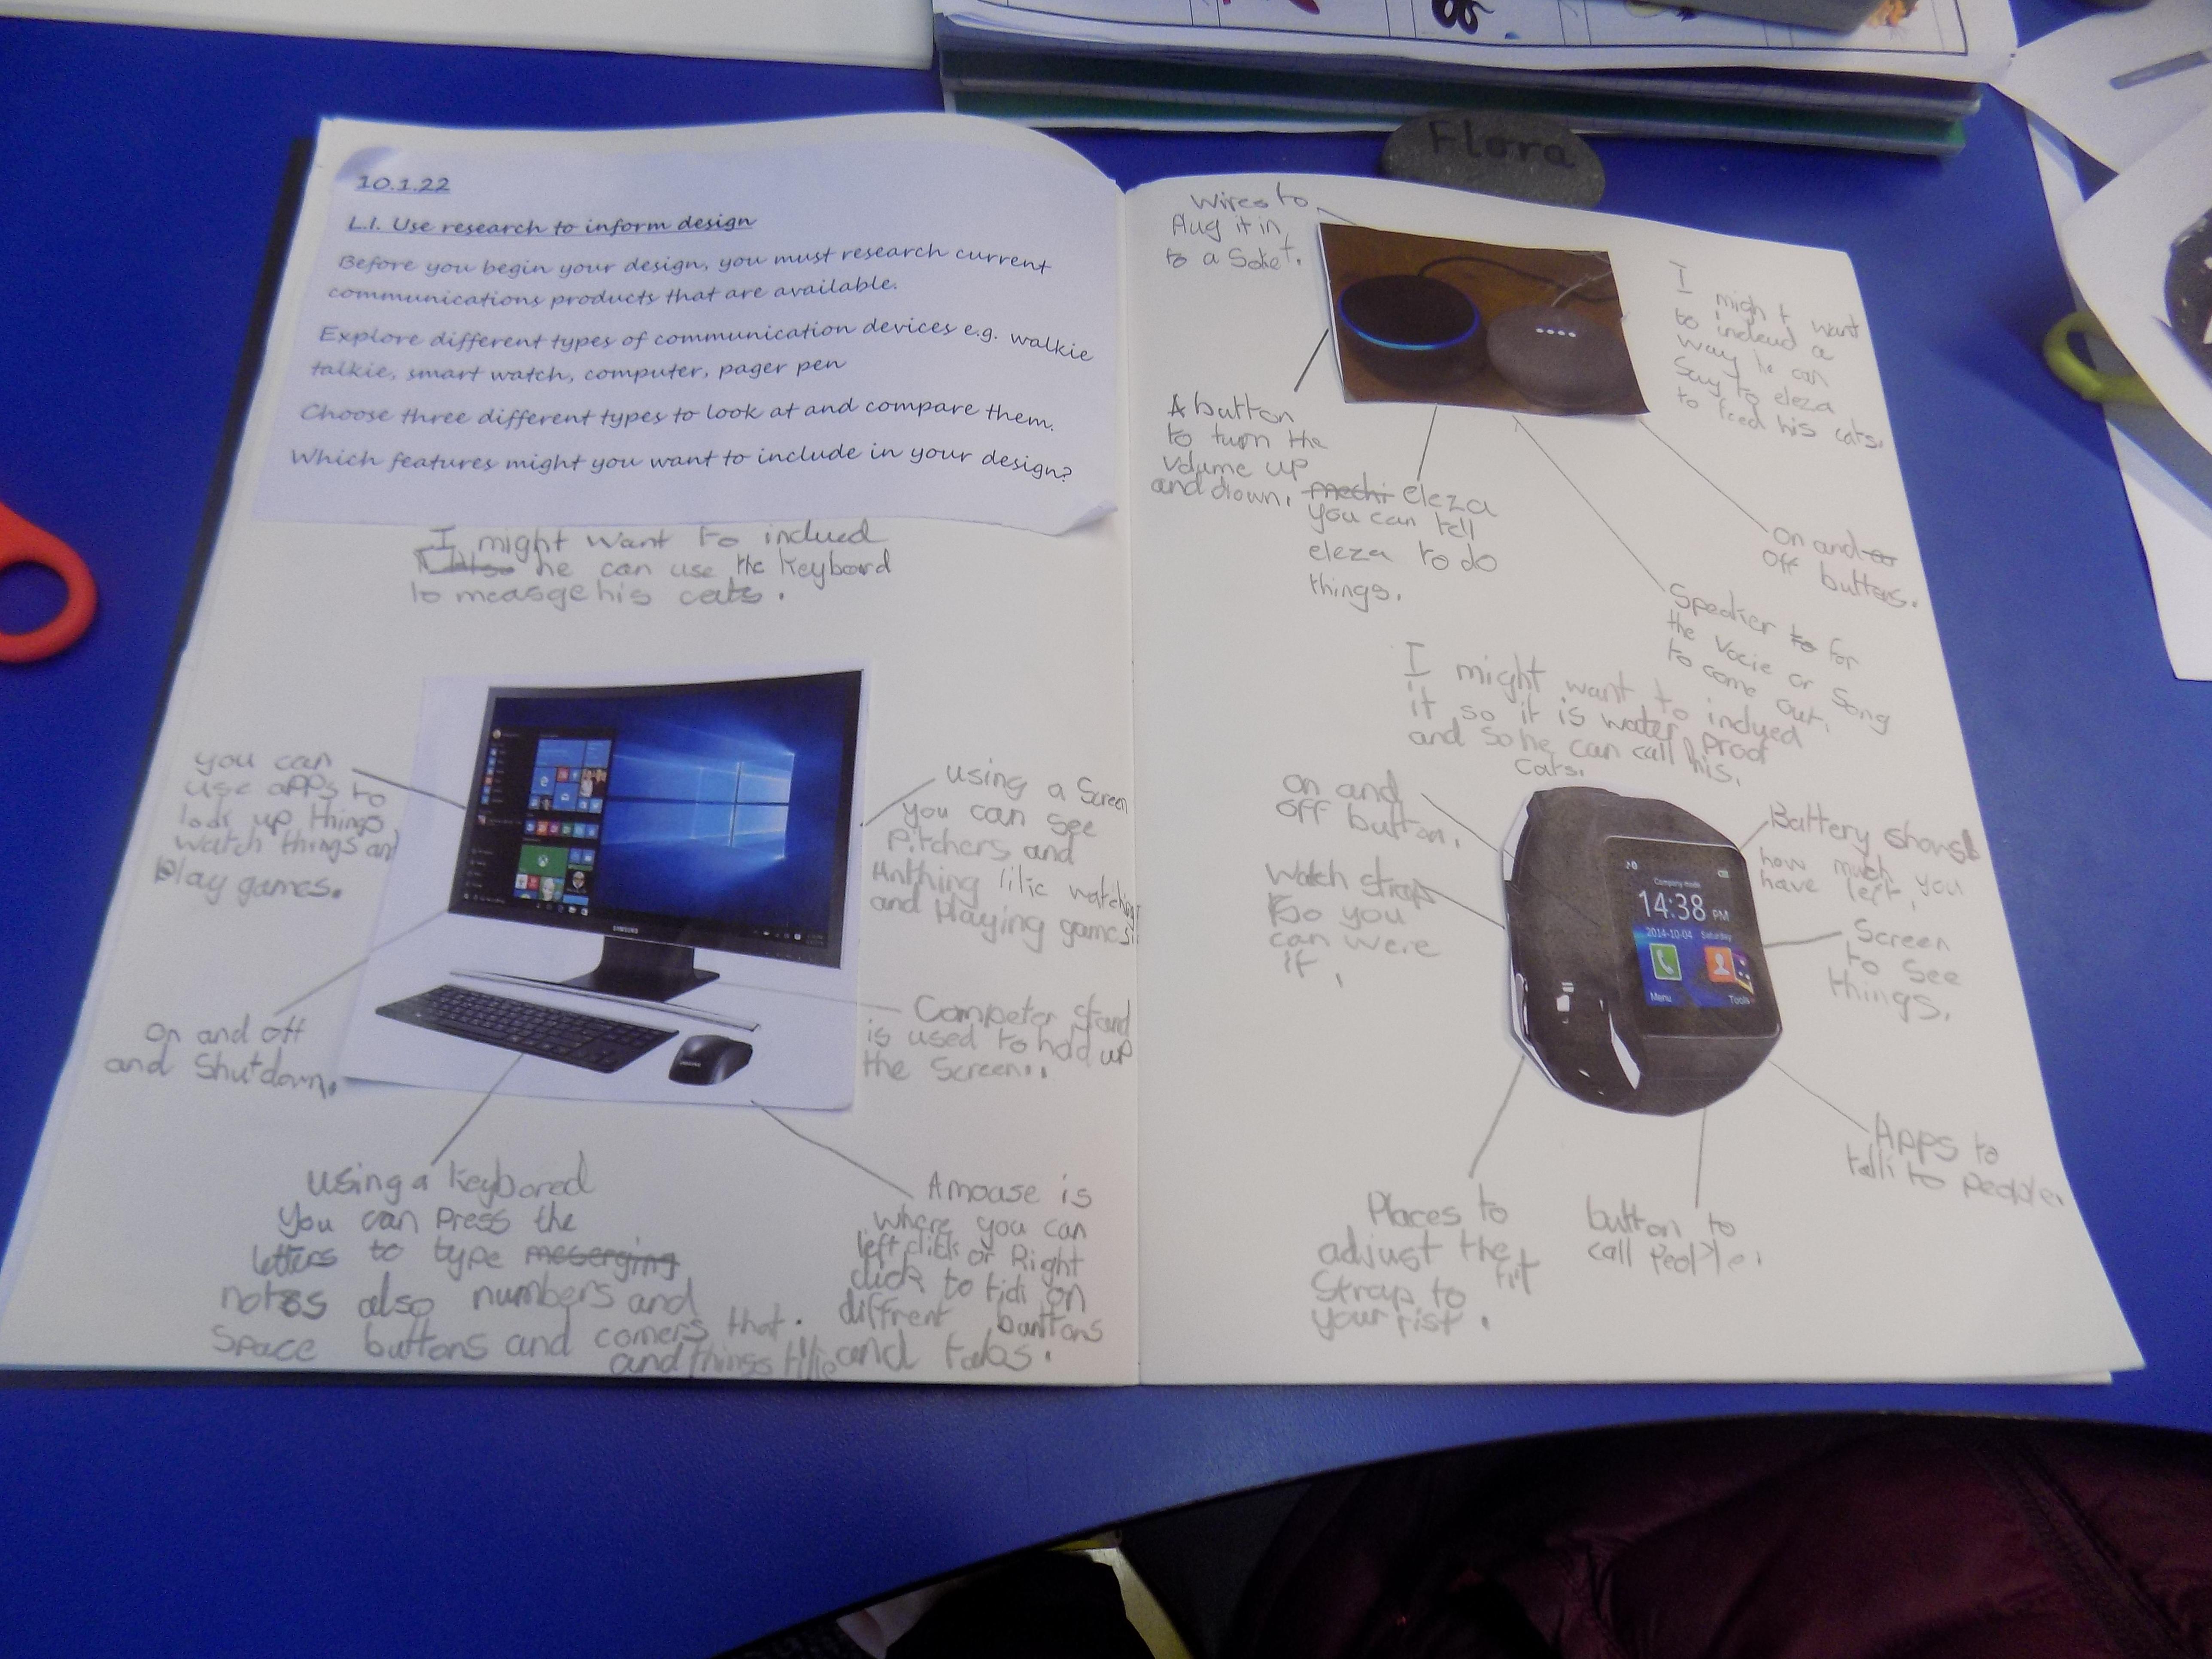 Flora
10.1.22
L.I. Use research to inform design
Before you begin your design, you must research current
communications products that are available.
Explore different types of communication devices e.g. walkie
talkie, smart watch, computer, pager pen
Choose three different types to look at and compare them.
Which features might you want to include in your design?
I might want to indued
he can use the keyboard
to measge his cats.
you can
use apps to
look up things
watch things and
play games.
using a screen
you can see
Pitchers and
Anthing like
and playing games.
SAMSUNG
on and off
and shutdown.
Competer stand
is used to hold up
the screen..
using a keybored
you can press the
letters to type meserging
notes also numbers and
space buttons and comers that.
and things like
A mouse is
where you can
left click or Right
click to on
diffrent buttons
and tabs.
wires to
Plug it in
to a Soket.
I might want
to indeud a
way he can
say to eleza
to feed his cats.
A button
to turn the
volume up
and down.
eleza
you can tell
eleza to do
things.
on and
off buttons.
Speaker to for
the vocie or song
to come out.
I might want to indued
it so it is water proof
and so he can call his
cats.
on and
off button.
watch strap
so you
can were
it.
Battery shows
how much you
have left.
Company mode
14:38 PM
2014-10-04 Saturday
Menu Tools
Screen
to see
things.
Apps to
talk to people.
Places to
adjust the
strap to fit
your rist.
button to
call people.